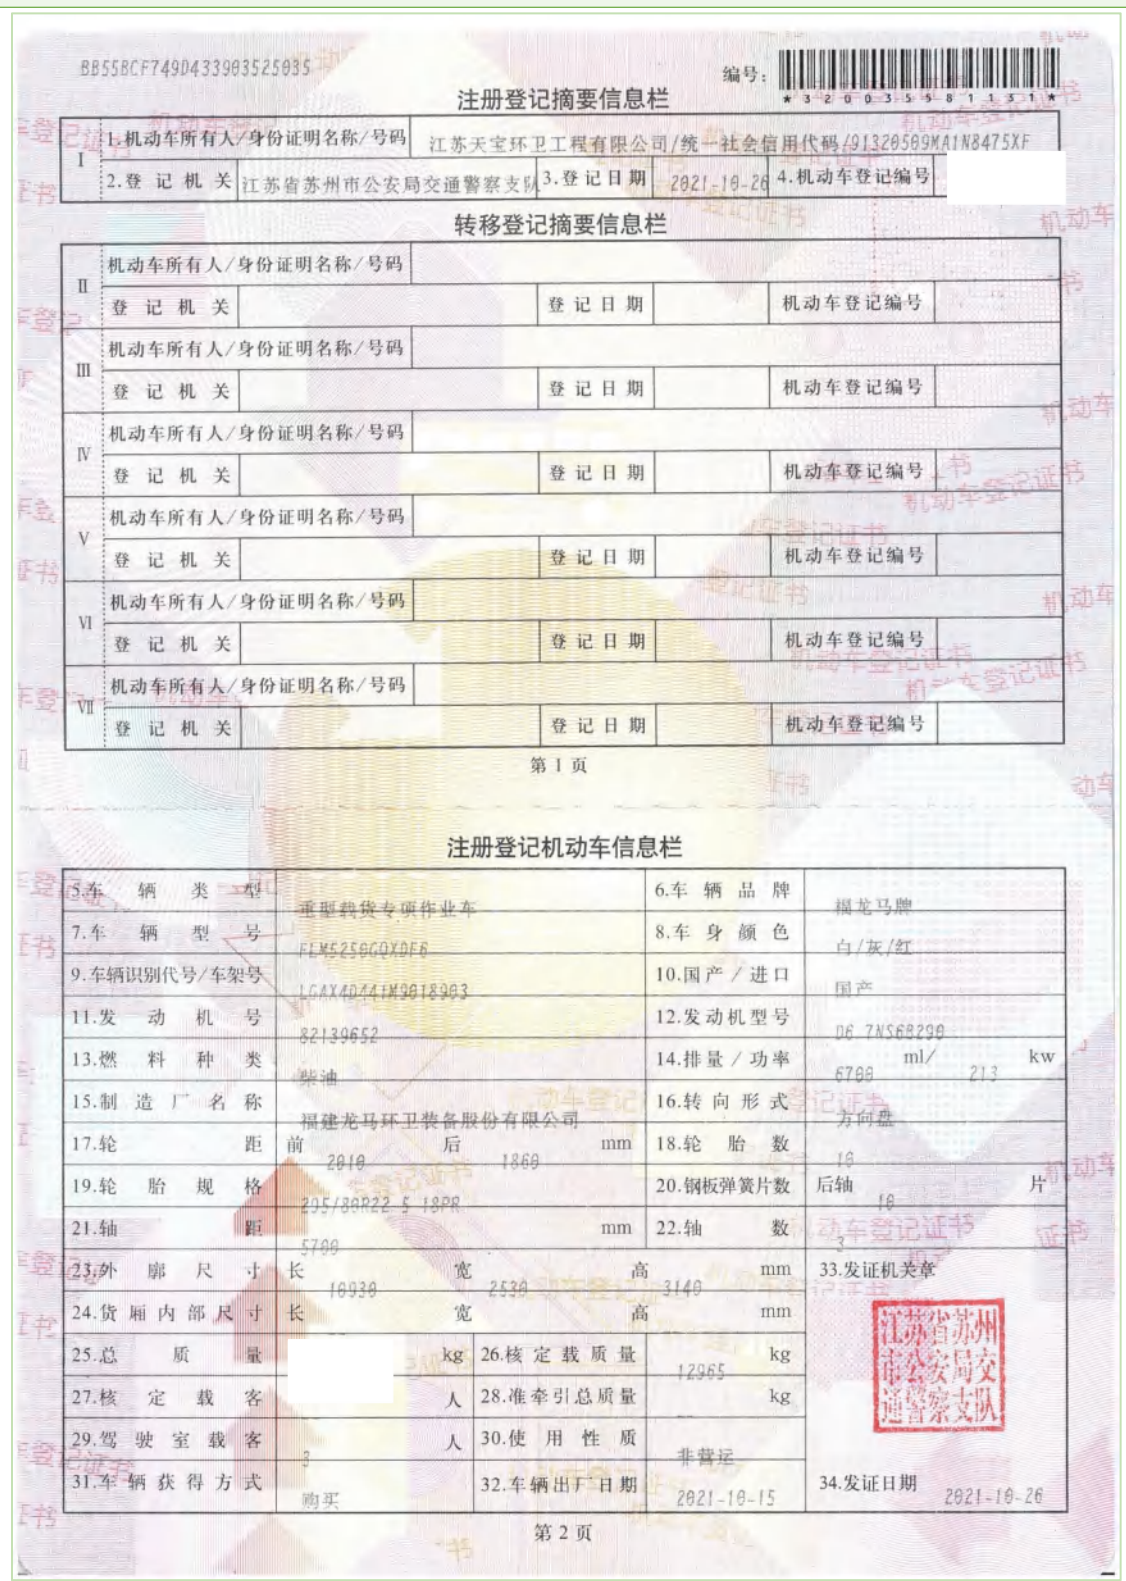 BB55BCF749D433903525035
编号：
*320035581131*
注册登记摘要信息栏
I 1.机动车所有人/身份证明名称/号码 江苏天宝环卫工程有限公司/统一社会信用代码/91320509MA1N8475XF
2.登记机关 江苏省苏州市公安局交通警察支队 3.登记日期 2021-10-26 4.机动车登记编号
转移登记摘要信息栏
II 机动车所有人/身份证明名称/号码
登记机关 登记日期 机动车登记编号
III 机动车所有人/身份证明名称/号码
登记机关 登记日期 机动车登记编号
IV 机动车所有人/身份证明名称/号码
登记机关 登记日期 机动车登记编号
V 机动车所有人/身份证明名称/号码
登记机关 登记日期 机动车登记编号
VI 机动车所有人/身份证明名称/号码
登记机关 登记日期 机动车登记编号
VII 机动车所有人/身份证明名称/号码
登记机关 登记日期 机动车登记编号
第1页
注册登记机动车信息栏
5.车辆类型 重型载货专项作业车 6.车辆品牌 福龙马牌
7.车辆型号 FLM5250GQXDF6 8.车身颜色 白/灰/红
9.车辆识别代号/车架号 LGAX4D441M9018903 10.国产/进口 国产
11.发动机号 82139652 12.发动机型号 D6.7NS6B290
13.燃料种类 柴油 14.排量/功率 6700 ml/ 213 kw
15.制造厂名称 福建龙马环卫装备股份有限公司 16.转向形式 方向盘
17.轮距 前 2010 后 1860 mm 18.轮胎数 10
19.轮胎规格 295/80R22.5 18PR 20.钢板弹簧片数 后轴 10 片
21.轴距 5700 mm 22.轴数 3
23.外廓尺寸 长 10930 宽 2530 高 3140 mm 33.发证机关章
24.货厢内部尺寸 长 宽 高 mm
江苏省苏州
市公安局交
通警察支队
25.总质量 kg 26.核定载质量 12965 kg
27.核定载客 人 28.准牵引总质量 -- kg
29.驾驶室载客 3 人 30.使用性质 非营运
31.车辆获得方式 购买 32.车辆出厂日期 2021-10-15 34.发证日期 2021-10-26
第2页